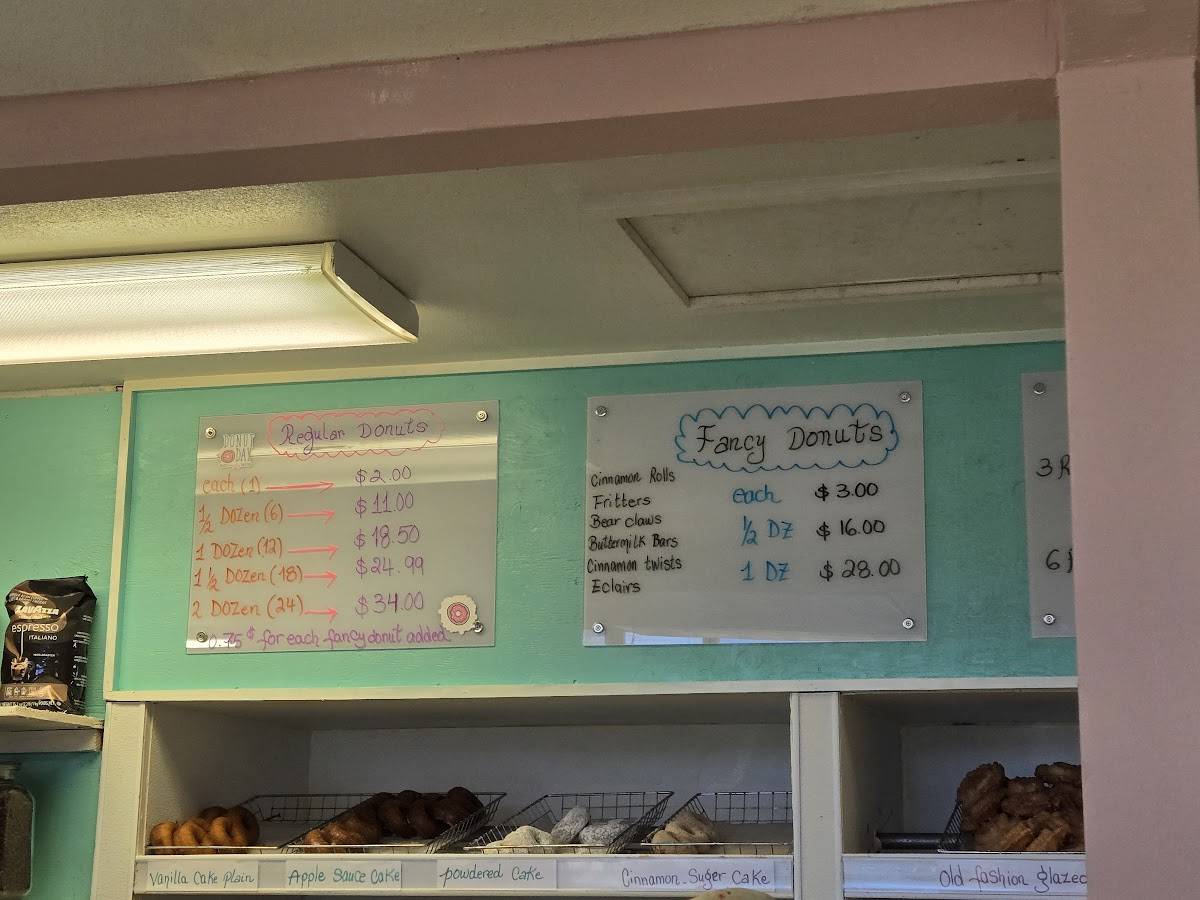 Regular Donuts
DONUT
DAY
each (1) $2.00
1/2 Dozen (6) $11.00
1 Dozen (12) $18.50
1 1/2 Dozen (18) $24.99
2 Dozen (24) $34.00
0.75 ¢ for each fancy donut added
Fancy Donuts
Cinnamon Rolls
Fritters
Bear claws
Buttermilk Bars
Cinnamon twists
Eclairs
each $3.00
1/2 DZ $16.00
1 DZ $28.00
3
6
LAVAZZA
espresso
ITALIANO
Vanilla Cake Plain
Apple Sauce Cake
powdered Cake
Cinnamon-Suger Cake
Old fashion glazed